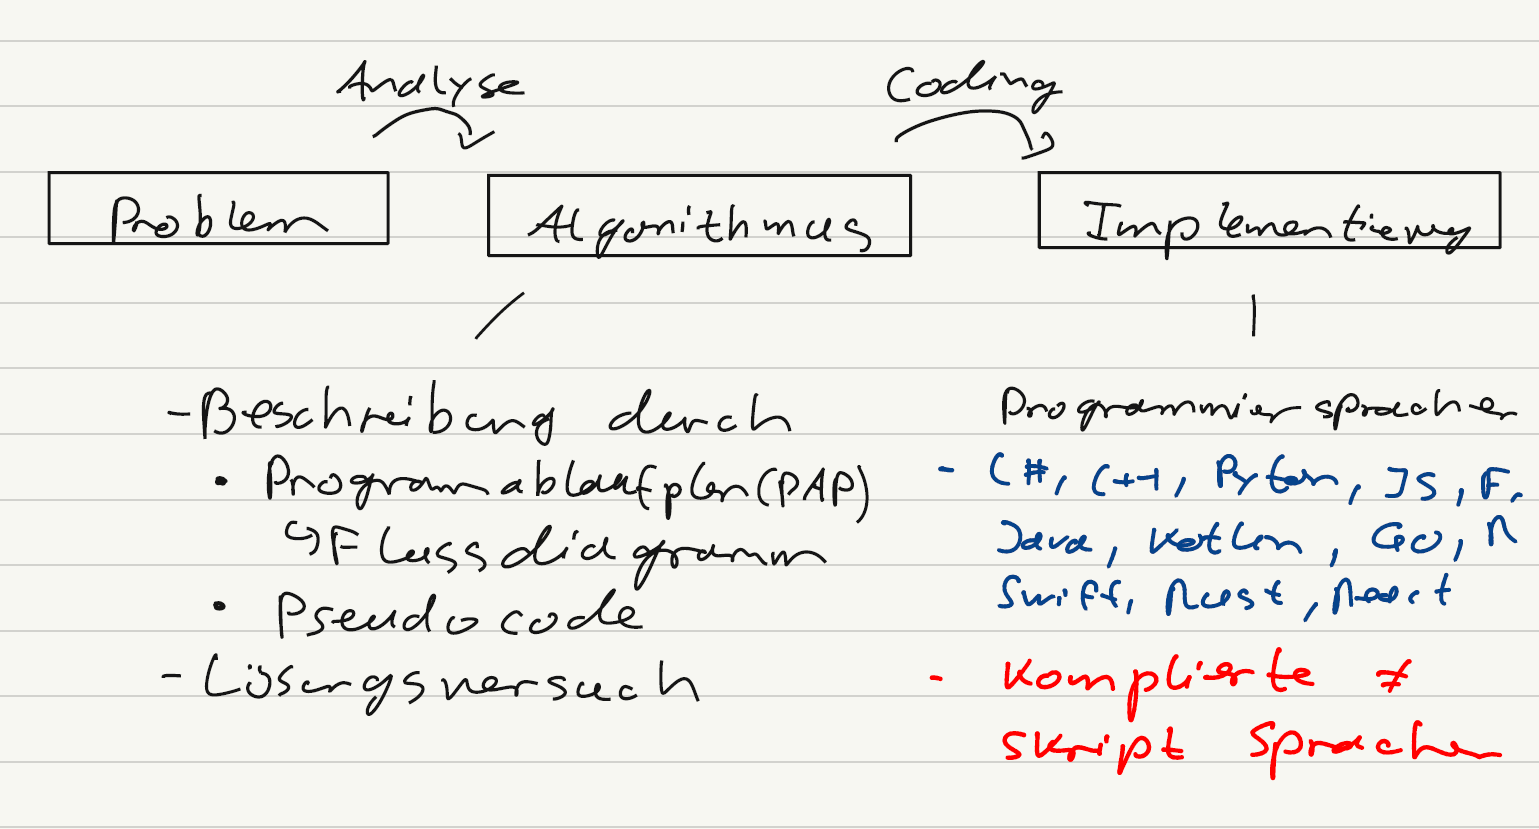 Analyse Coding
Problem Algorithmus Implementierung
- Beschreibung durch
• Programmablaufplan (PAP)
↳ Flussdiagramm
• Pseudocode
- Lösungsversuch
Programmiersprachen
- C#, C++, Pyton, JS, F,
Java, Kotlin, GO, R
Swift, Rust, React
- Komplierte ≠
Skript Sprachen